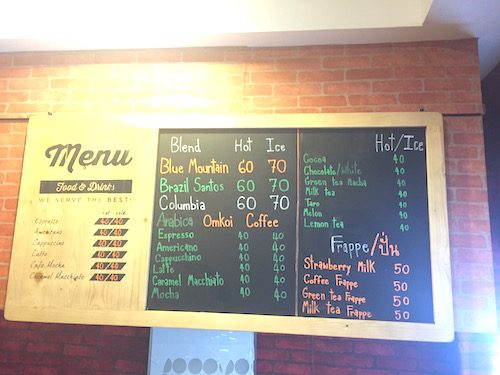 Menu
Food & Drinks
WE SERVE THE BEST!
hot cold
Espresso 40/40
Americano 40/40
Cappuccino 40/40
Latte 40/40
Cafe Mocha 40/40
Caramel Macchiato 40/40
Blend Hot Ice
Blue Mountain 60 70
Brazil Santos 60 70
Columbia 60 70
Arabica Omkoi Coffee
Espresso 40 40
Americano 40 40
Cappuchino 40 40
Latte 40 40
Caramel Macchiato 40 40
Mocha 40 40
Hot/Ice
Cocoa 40
Chocolate/White 40
Green tea Macha 40
Milk tea 40
Taro 40
Melon 40
Lemon tea 40
Frappe/ปั่น
Strawberry Milk 50
Coffee Frappe 50
Green tea Frappe 50
Milk tea Frappe 50